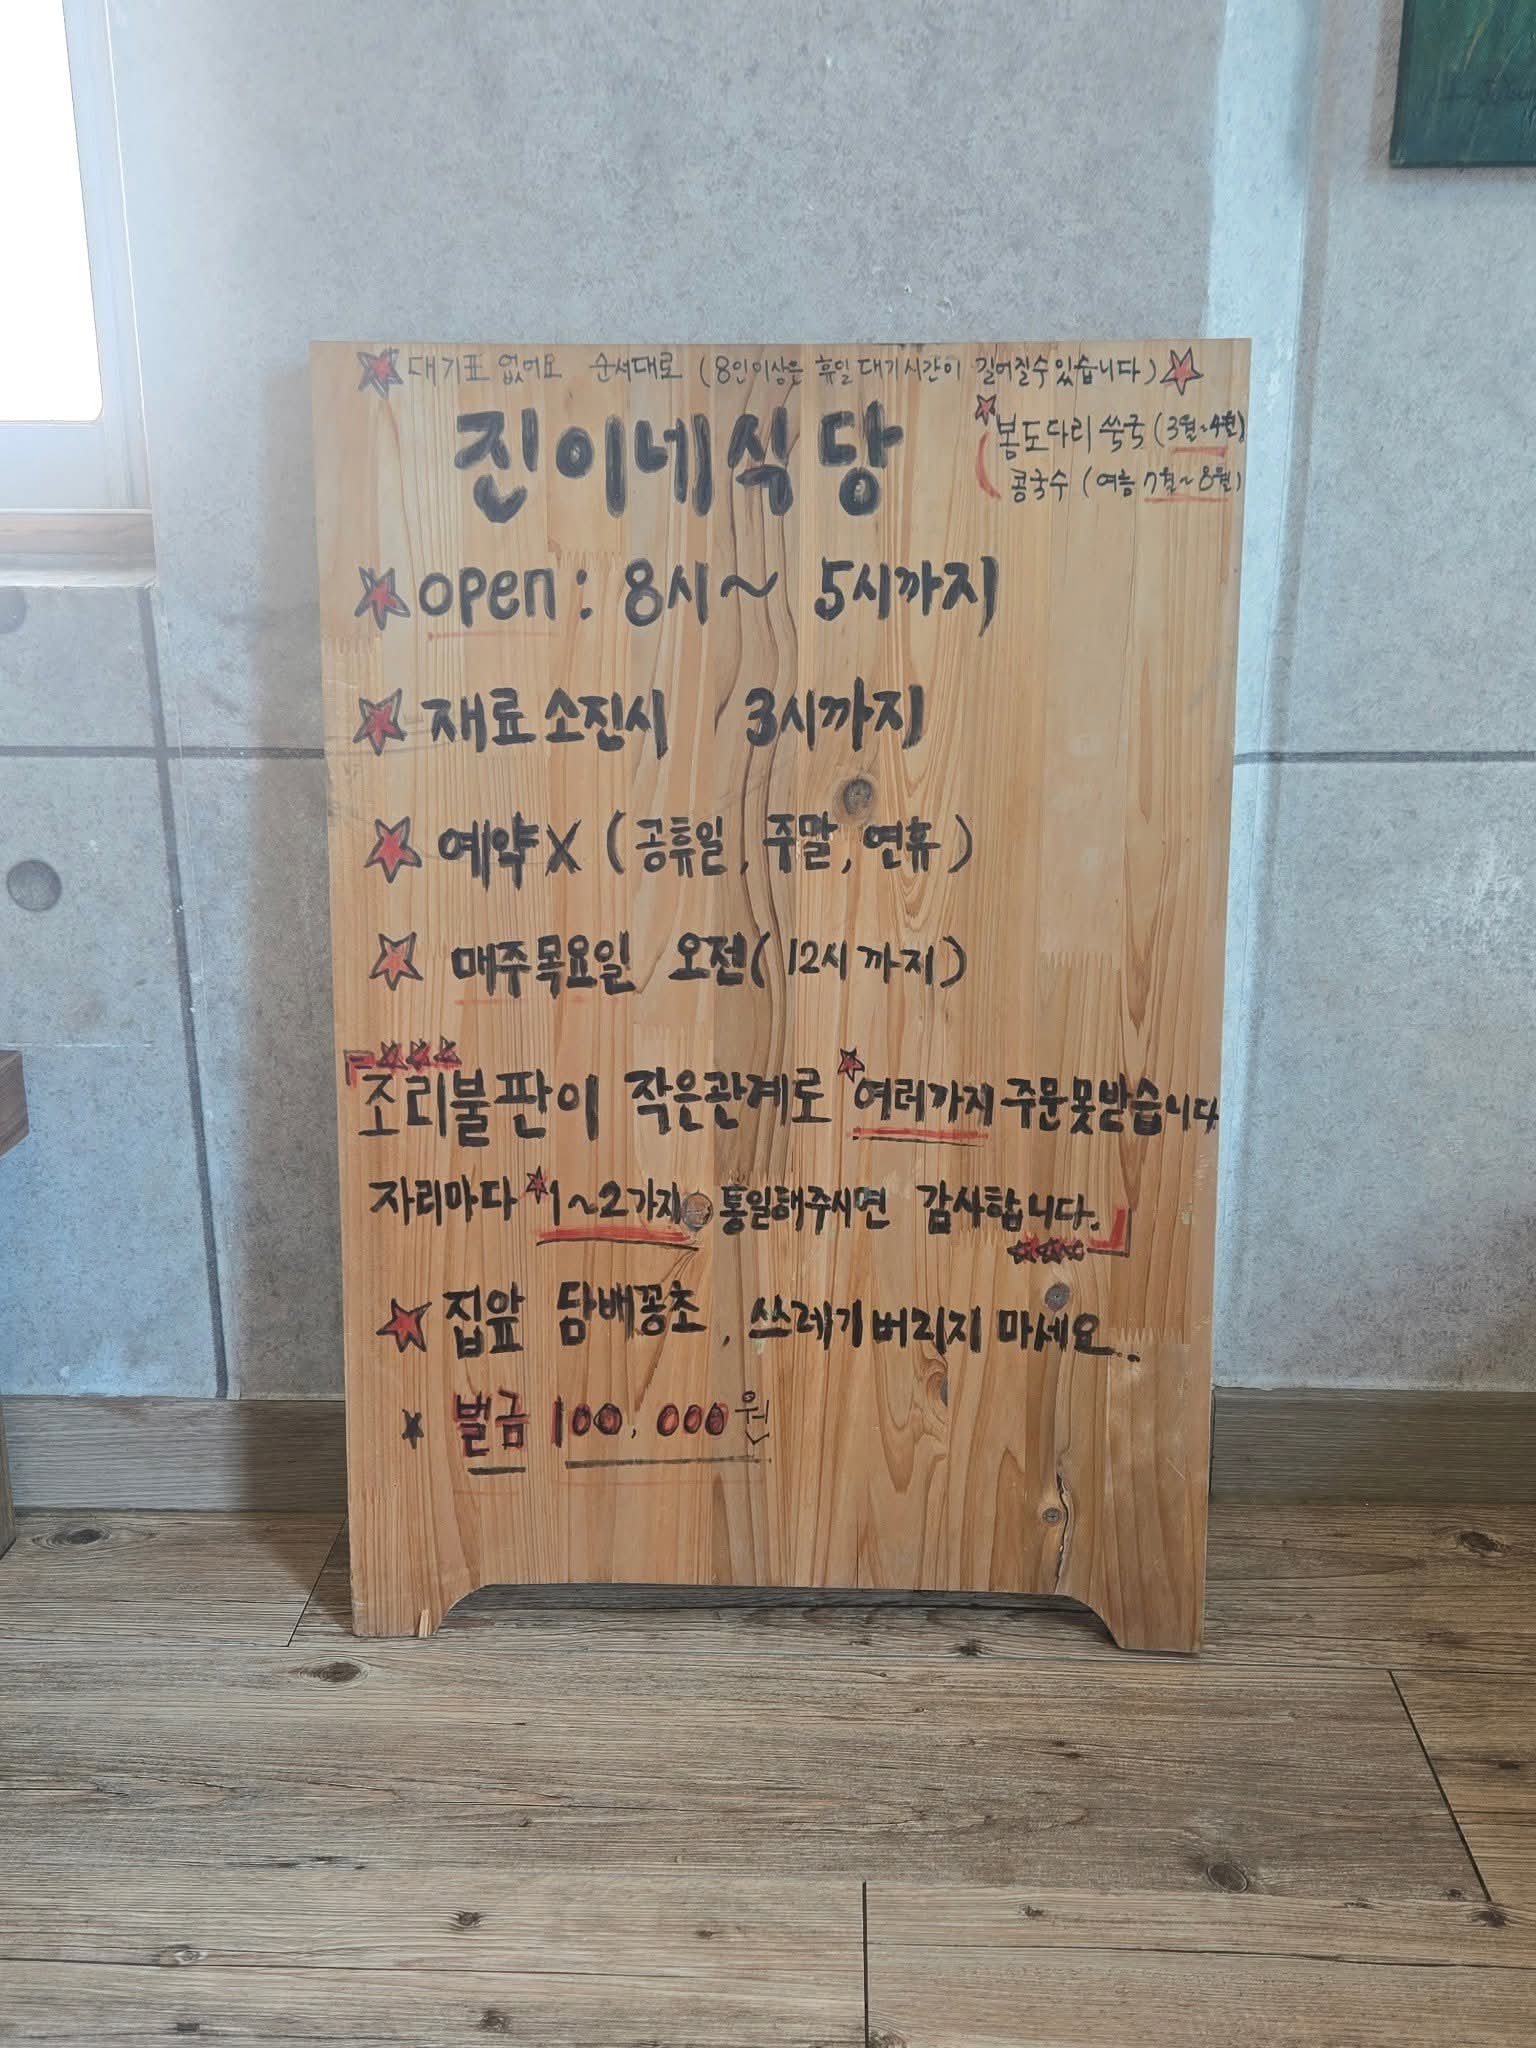 대기표 없어요 순서대로 (8인이상은 휴일 대기시간이 길어질수 있습니다)
진이네식당
봄도다리 쑥국 (3월~4월)
콩국수 (여름 7월~8월)
open : 8시~ 5시까지
재료소진시 3시까지
예약X (공휴일, 주말, 연휴)
매주목요일 오전(12시까지)
조리불판이 작은관계로 여러가지 주문못받습니다
자리마다 1~2가지 통일해주시면 감사합니다.
집앞 담배꽁초, 쓰레기버리지 마세요..
벌금 100,000원